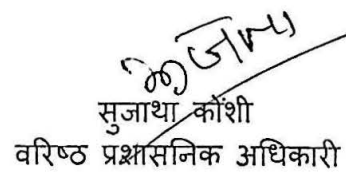 सुजाथा कोंशी
वरिष्ठ प्रशासनिक अधिकारी